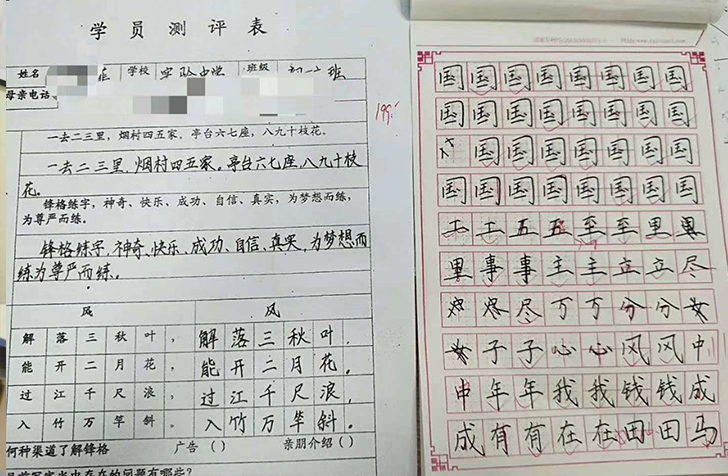 学员测评表
姓名 菲 学校 实验中学 班级 初一六班
母亲电话
199.-
一去二三里，烟村四五家。亭台六七座，八九十枝花。
一去二三里，烟村四五家。亭台六七座，八九十枝
花。
锋格练字，神奇、快乐、成功、自信、真实，为梦想而练，
为尊严而练。
锋格练字，神奇、快乐、成功、自信、真实，为梦想而
练为尊严而练。
风 风
解落三秋叶， 解落三秋叶，
能开二月花， 能开二月花，
过江千尺浪， 过江千尺浪，
入竹万竿斜。 入竹万竿斜。
何种渠道了解锋格 广告（ ） 亲朋介绍（ ）
目前写字当中存在的问题有哪些？
国国国国国国国国
国国国国国国国国
国国国国国国国
国国国国国国国国
工工五五至至里里
里事事主主立立尽
尽尽万万分分女
女子子心心风风中
中年年我我钱钱成
成有有在在田田马